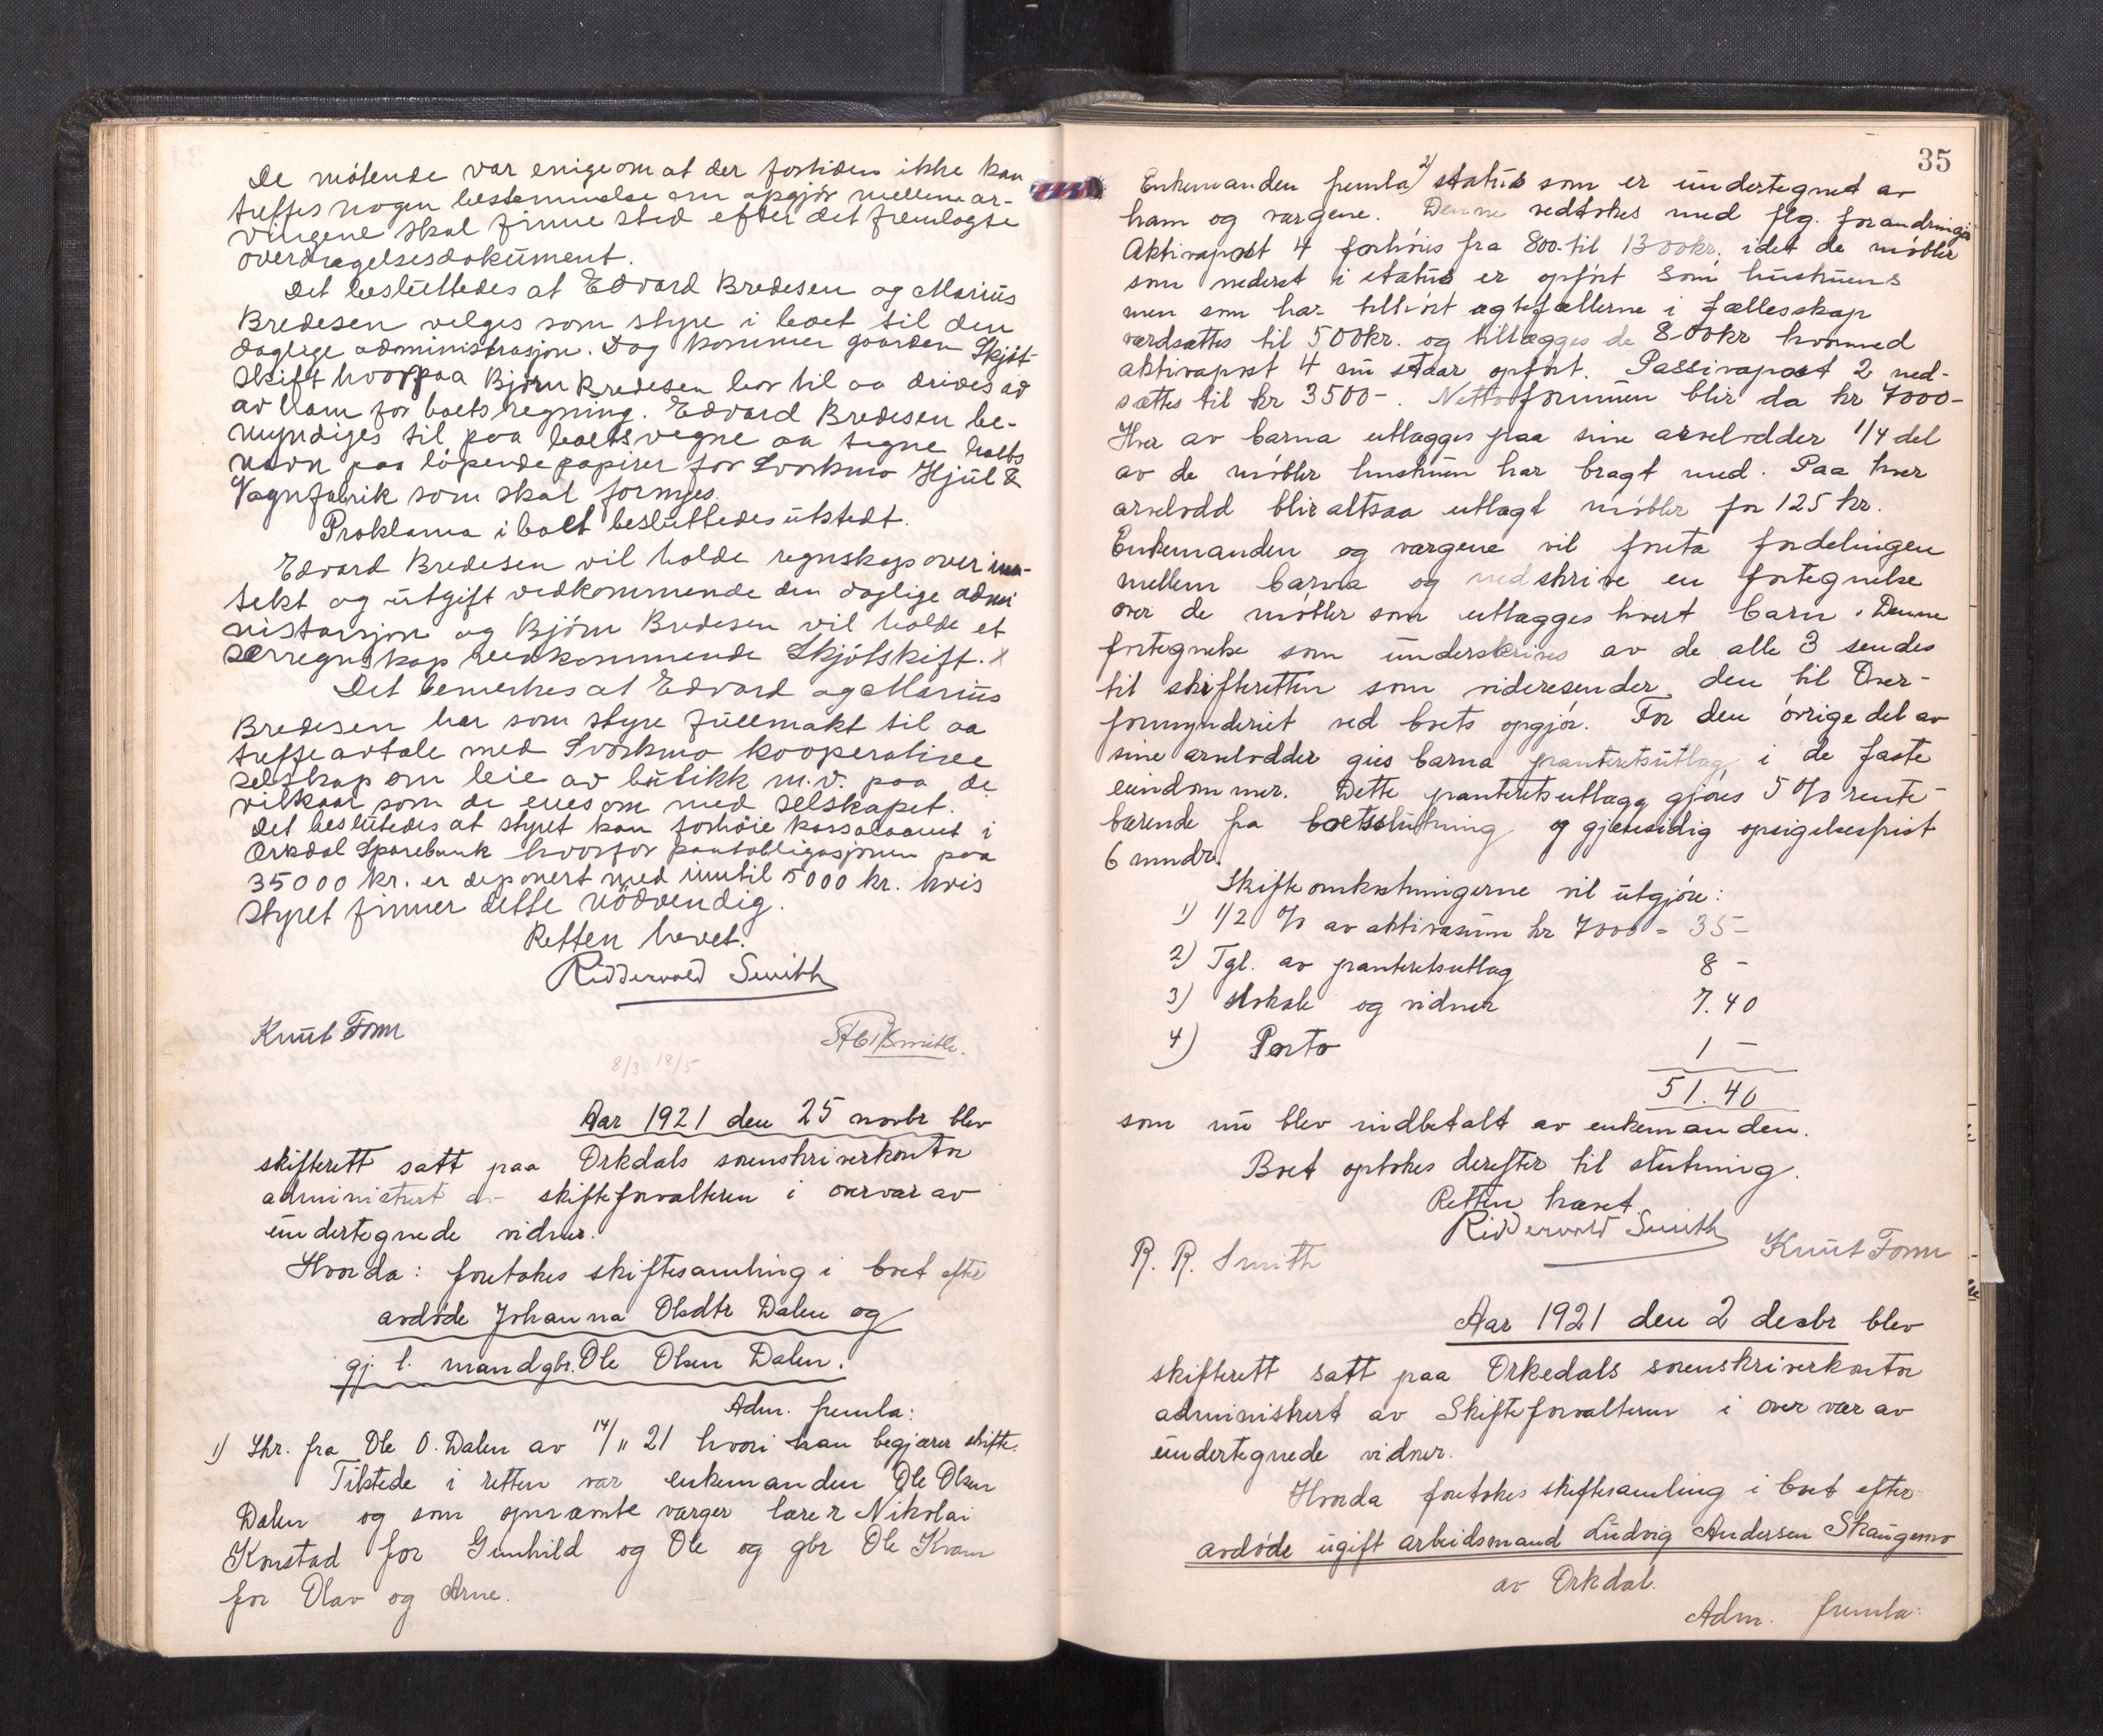 De mötende var enige om at der fortiden ikke kan
treffes nogen bestemmelse om opgjör mellem ar-
vingene skal finne sted efter det fremlagte
overdragelsesdokument.
Det besluttedes at Edvard Bredesen og Marius
Bredesen velges som styre i boet til den
daglige administrasjon. Dog kommer gaarden Skjöt-
skift hvorpaa Björn Bredesen bor til aa drives av
av ham for boets regning. Edvard Bredesen be-
myndiges til paa boets vegne aa tegne boets
navn paa löpende papirer for Svorkmo Hjul &
Vognfabrik som skal fornyes.
Proklama i boet besluttedes utstedt.
Edvard Bredesen vil holde regnskap over inn-
tekt og utgift vedkommende den daglige admi
nistrasjon og Björn Bredesen vil holde et
særregnskap vedkommende Skjötskift.
Det bemerkes at Edvard og Marius
Bredesen har som styre fullmakt til aa
treffe avtale med Svorkmo kooperative
selskap om leie av butikk m.v. paa de
vilkaar som de enes om med selskapet.
Det beslutedes at styret kan forhöie kassalaanet i
Orkdal Sparebank hvorfor pantobligasjonen paa
35000 kr. er deponert med inntil 5000 kr. hvis
styret finner dette nödvendig.
Retten hevet.
Ridderwold Smith
Knut Form
Smith.
8/3 18/5
Aar 1921 den 25 novbr blev
skifterett satt paa Orkdals sorenskriverkontor
administrert av skifteforvalteren i overvær av
undertegnede vidner.
Hvorda: foretokes skiftesamling i boet efter
avdöde Johanna Olsdtr Dalen og
gj. l. mand gbr. Ole Olsen Dalen.
Adm. fremla:
1) Skr. fra Ole O. Dalen av 14/11 21 hvori han begjærer skifte.
Tilstede i retten var enkemanden Ole Olsen
Dalen og som opnævnte værger lærer Nikolai
Konstad for Gunhild og Ole og gbr Ole Kvam
for Olav og Arne.
35
Enkemanden fremla 2) status som er undertegnet av
ham og værgene. Denne vedtokes med flg. forandringer
Aktivapost 4 forhöies fra 800.- til 1300 kr. idet de möbler
som nederst i status er opfört som hustruens
men som har tilhört ægtefællerne i fællesskap
værdsættes til 500 kr. og tillægges de 800 kr hvormed
aktivapost 4 nu staar opfört. Passivapost 2 ned-
sættes til kr 3500-. Nettoformuen blir da kr 7000-
Hver av barna utlægges paa sine arvelodder 1/4 del
av de möbler hustruen har bragt med. Paa hver
arvelodd blir altsaa utlagt möbler for 125 kr.
Enkemanden og værgene vil foreta fordelingen
mellem barna og nedskrive en fortegnelse
over de möbler som utlægges hvert barn. Denne
fortegnelse som underskrives av de alle 3 sendes
til skifteretten som videresender den til Over-
formynderiet ved boets opgjör. For den övrige del av
sine arvelodder gies barna panteretsutlæg i de faste
eiendommer. Dette panteretsutlægg gjöres 5 % rente-
bærende fra boetsslutning og gjensidig opsigelsesfrist
6 mndr.
Skifteomkostningerne vil utgjöre:
1) 1/2 % av aktivasum kr 7000 = 35-
2) Tgl. av panteretsutlæg 8 -
3) Lokale og vidner 7.40
4) Porto 1 -
51.40
som nu blev indbetalt av enkemanden.
Boet optokes derefter til slutning.
Retten hævet.
Ridderwold Smith
R. R. Smith
Knut Form
Aar 1921 den 2 desbr blev
skifterett satt paa Orkedals sorenskriverkontor
administrert av Skifteforvalteren i overvær av
undertegnede vidner.
Hvorda foretokes skiftesamling i boet efter
avdöde ugift arbeidsmand Ludvig Andersen Skaugemo
av Orkdal.
Adm. fremla: